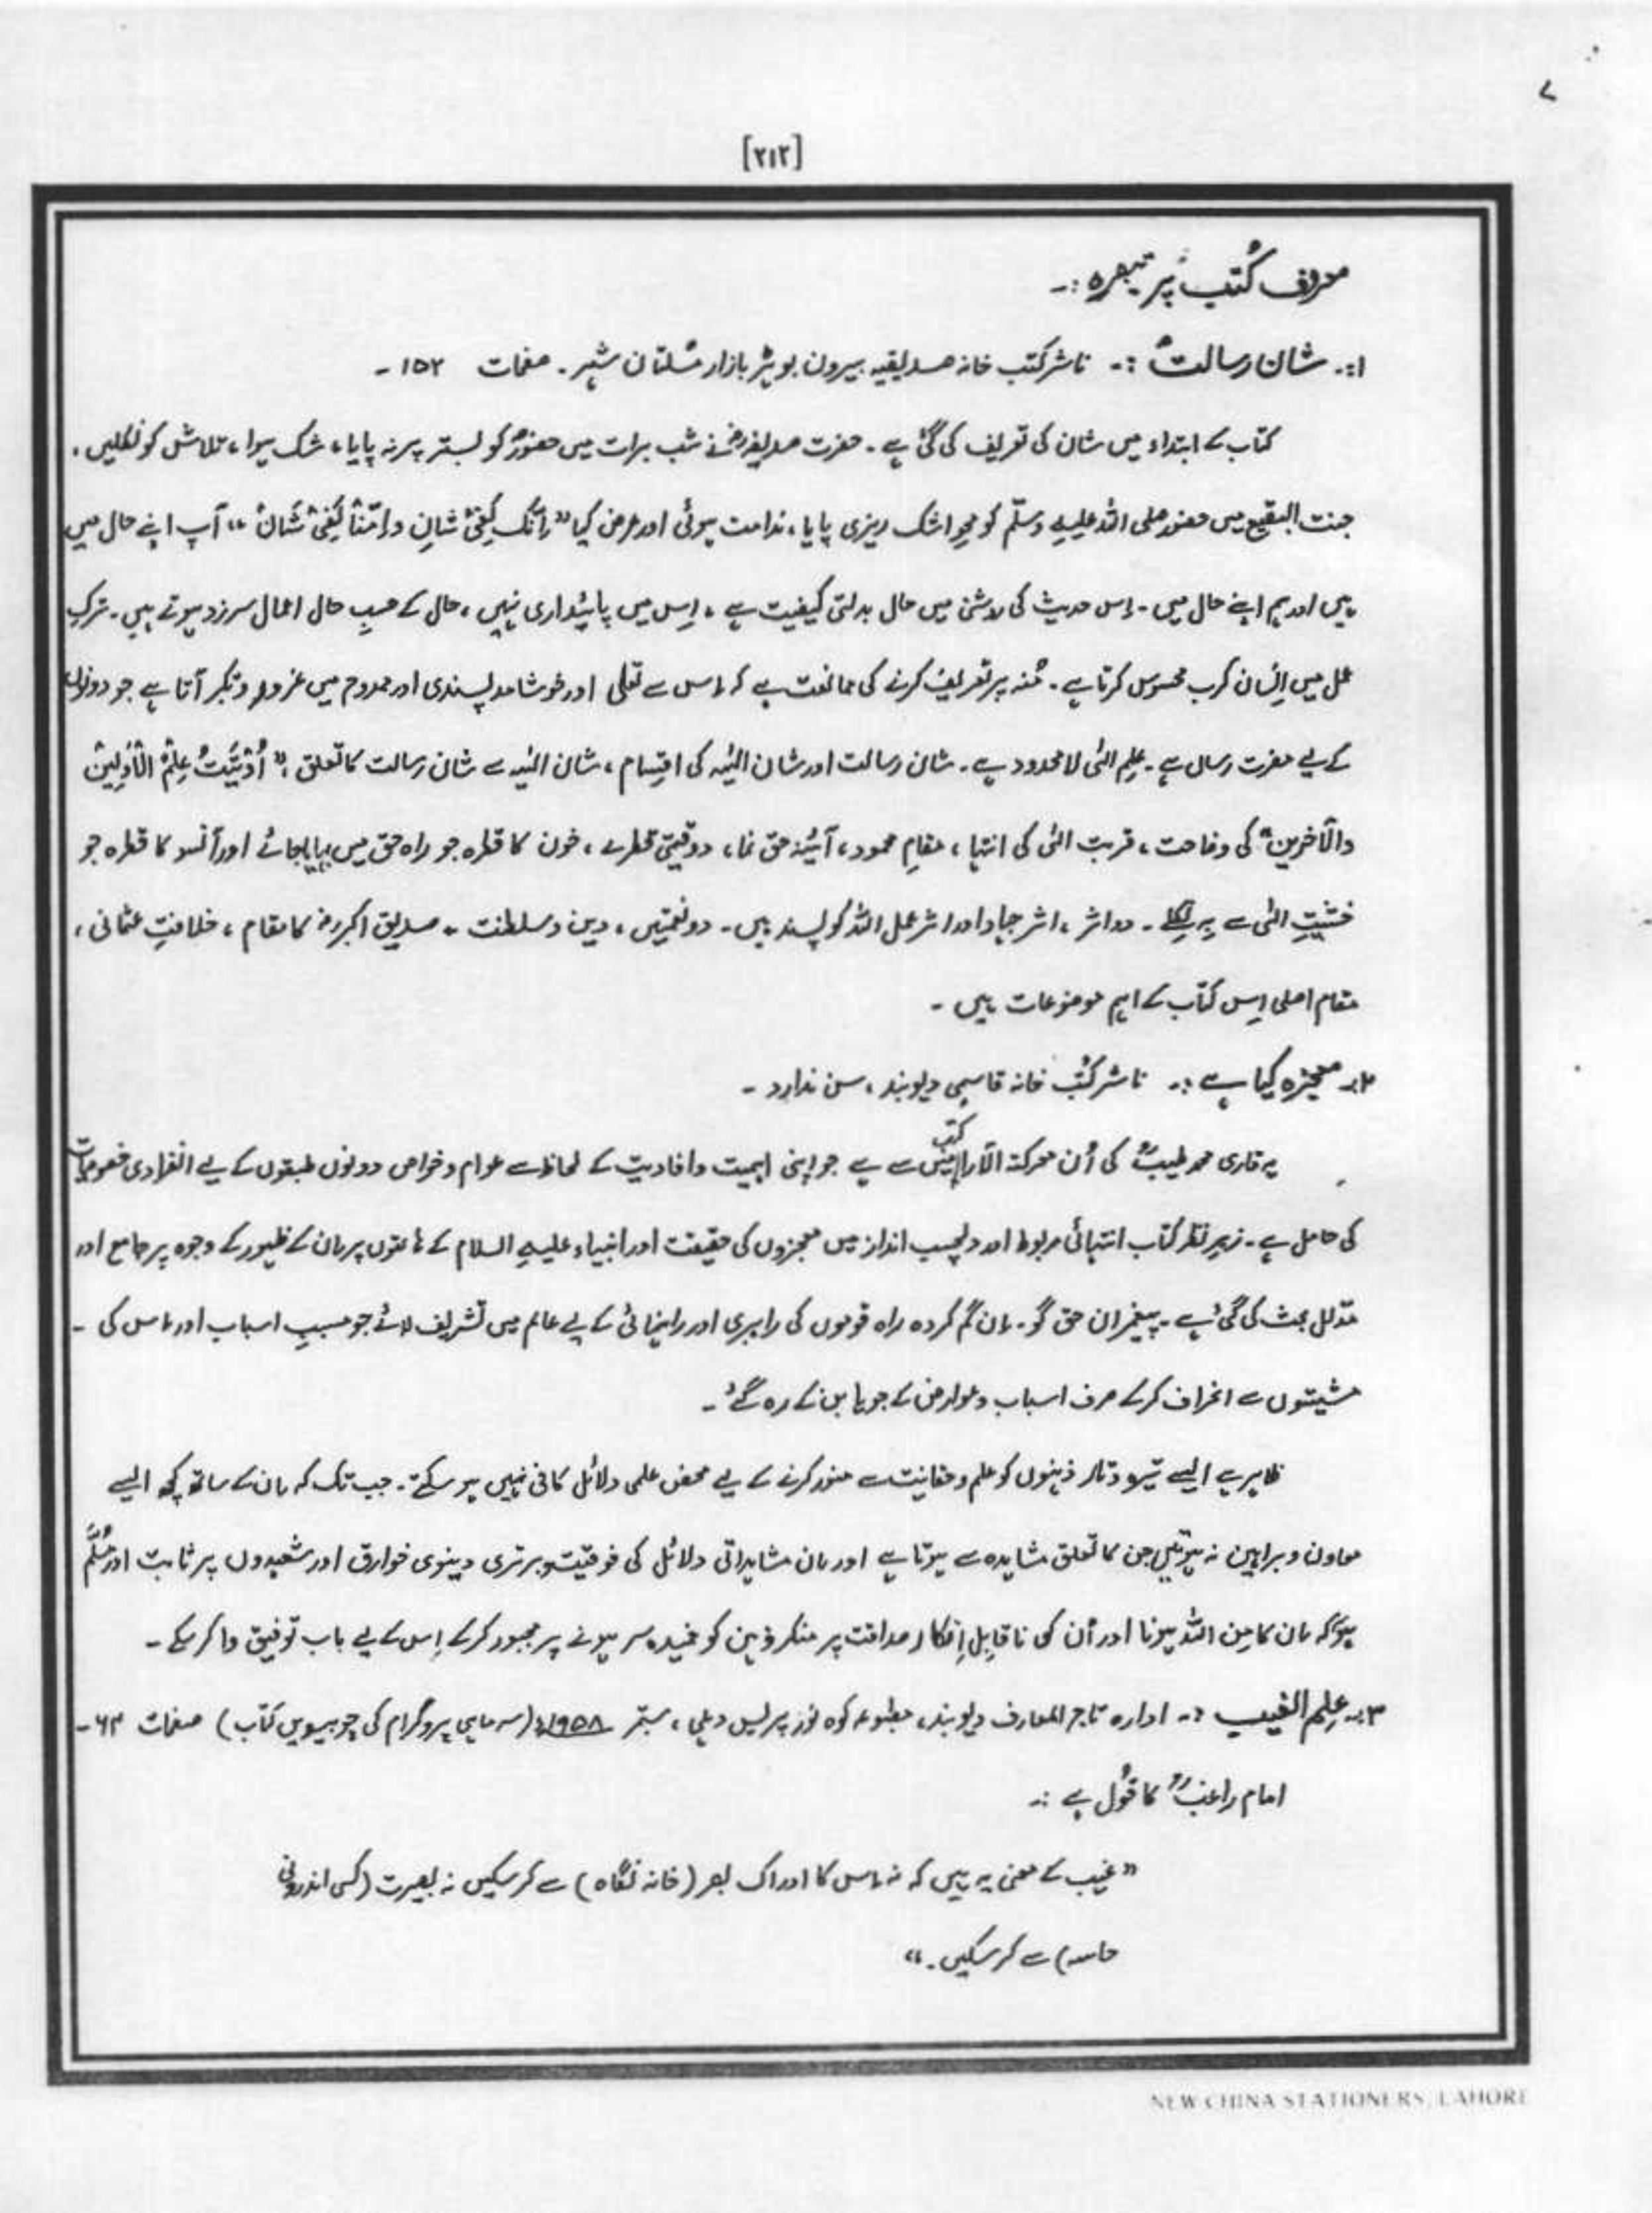 [۲۱۲]
معروف کُتب پر تبصرہ :۔
۱:۔ شان رسالتؐ :۔ ناشر کتب خانہ صدیقیہ بیرون بوہڑ بازار مُلتان شہر ۔ صفحات ۱۵۲ ۔
کتاب کے ابتداء میں شان کی تعریف کی گئی ہے ۔ حضرت صدیقہ رضؓ نے شب برات میں حضورؐ کو بستر پر نہ پایا ، شک ہوا ، تلاش کو نکلیں ،
جنت البقیع میں حضور صلی اللہ علیہ وسلّم کو محوِ اشک ریزی پایا ، ندامت ہوئی اور عرض کیا ” اِنَّکَ لَفِیْ شانِ واِنَّنَا لَفِیْ شَانٌ “ آپ اپنے حال میں
ہیں اور ہم اپنے حال میں ۔ اِس حدیث کی روشنی میں حال بدلتی کیفیت ہے ، اِس میں پائیداری نہیں ، حال کے حسبِ حال اعمال سرزد ہوتے ہیں ۔ ترکِ
عمل میں اِنسان کرب محسوس کرتا ہے ۔ مُنہ پر تعریف کرنے کی ممانعت ہے کہ اِس سے تعلی اور خوشامد پسندی اور ممدوح میں غرور و تکبر آتا ہے جو دونوں
کے لیے مضرت رساں ہے ۔ علم الٰہی لامحدود ہے ۔ شان رسالت اور شان الٰہیہ کی اقسام ، شان الٰہیہ سے شان رسالت کا تعلق ، ” اُوْتِیْتُ عِلْمُ الْاَوَّلِیْنَ
والآخرین “ کی وضاحت ، قربت الٰہی کی انتہا ، مقامِ محمود ، آئینہ حق نما ، دو قیمتی قطرے ، خون کا قطرہ جو راہ حق میں بہایا جائے اور آنسو کا قطرہ جو
خشیتِ الٰہی سے بہہ نکلے ۔ دو اثر ، اثر جہاد اور اثر عمل اللہ کو پسند ہیں ۔ دو نعمتیں ، دین و سلطنت ۔ صدیق اکبرؓ کا مقام ، خلافتِ عثمانی ،
مقام اصلی اِس کتاب کے اہم موضوعات ہیں ۔
۲:۔ معجزہ کیا ہے :۔ ناشر کُتب خانہ قاسمی دیوبند ، سن ندارد ۔
یہ قاری محمد طیبؒ کی اُن معرکۃ الآرا کتب میں سے ہے جو اپنی اہمیت و افادیت کے لحاظ سے عوام و خواص دونوں طبقوں کے لیے انفرادی خصوصیات
کی حامل ہے ۔ زیرِ نظر کتاب انتہائی مربوط اور دلچسپ انداز میں معجزوں کی حقیقت اور انبیاء علیہ السلام کے ہاتھوں پر اِن کے ظہور کے وجوہ پر جامع اور
مدّلل بحث کی گئی ہے ۔ پیغمبران حق گو ۔ اِن گم کردہ راہ قوموں کی راہبری اور راہنمائی کے لیے عالم میں تشریف لائے جو مسببِ اسباب اور اس کی ۔
مشیتوں سے انحراف کرکے صرف اسباب و عوارض کے جویا بن کے رہ گئے ۔
ظاہر ہے ایسے تیرہ و تار ذہنوں کو علم و حقانیت سے منور کرنے کے لیے محض علمی دلائل کافی نہیں ہو سکتے ۔ جب تک کہ اِن کے ساتھ کچھ ایسے
معاون و براہین نہ ہوتیں جن کا تعلق مشاہدہ سے ہوتا ہے اور اِن مشاہداتی دلائل کی فوقیت و برتری دینوی خوارق اور شعبدوں پر ثابت اور مُسلَّم
ہو کہ اِن کا مِن اللہ ہونا اور اُن کی ناقابِل اِنکار صداقت پر منکر ذہن کو خمیدہ سر ہونے پر مجبور کرکے اِس کے لیے باب توفیق وا کر سکے ۔
۳:۔ عِلم الغیب :۔ ادارہ تاجر المعارف دیوبند ، مطبوعہ کوہ نور پریس دہلی ، ستمبر ۱۹۵۸ء (سہ ماہی پروگرام کی چوبیسویں کتاب) صفحات ۶۳ ۔
امام راغبؒ کا قول ہے :۔
” غیب کے معنی یہ ہیں کہ نہ اِس کا ادراک بصر (خانہ نگاہ) سے کرسکیں نہ بصیرت (کسی اندرونی
حاسہ) سے کرسکیں ۔ “
NEW CHINA STATIONERS, LAHORE